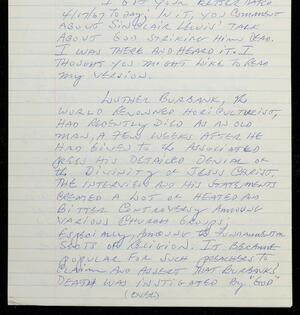 I GOT YOUR LETTER DATED
4/17/67 TODAY. IN IT, YOU COMMENT
ABOUT SINCLAIR LEWIS' TALK
ABOUT GOD STRIKING HIM DEAD.
I WAS THERE AND HEARD IT. I
THOUGHT YOU MIGHT LIKE TO READ
MY VERSION.
LUTHER BURBANK, THE
WORLD RENOWNED HORTICULTURIST,
HAD RECENTLY DIED AS AN OLD
MAN, A FEW WEEKS AFTER HE
HAD GIVEN TO THE ASSOCIATED
PRESS HIS DETAILED DENIAL OF
THE DIVINITY OF JESUS CHRIST.
THE INTERVIEW AND HIS STATEMENTS
CREATED A LOT OF HEATED AND
BITTER CONTROVERSY AMOUNG
VARIOUS CHURCH GROUPS,
ESPECIALLY, AMOUNG THE FUNDAMENTALIST
SECTS OF RELIGION. IT BECAME
POPULAR FOR SUCH PREACHERS TO
CLAIM AND ASSERT THAT BURBANK'S
DEATH WAS INSTIGATED BY "GOD"
(OVER)